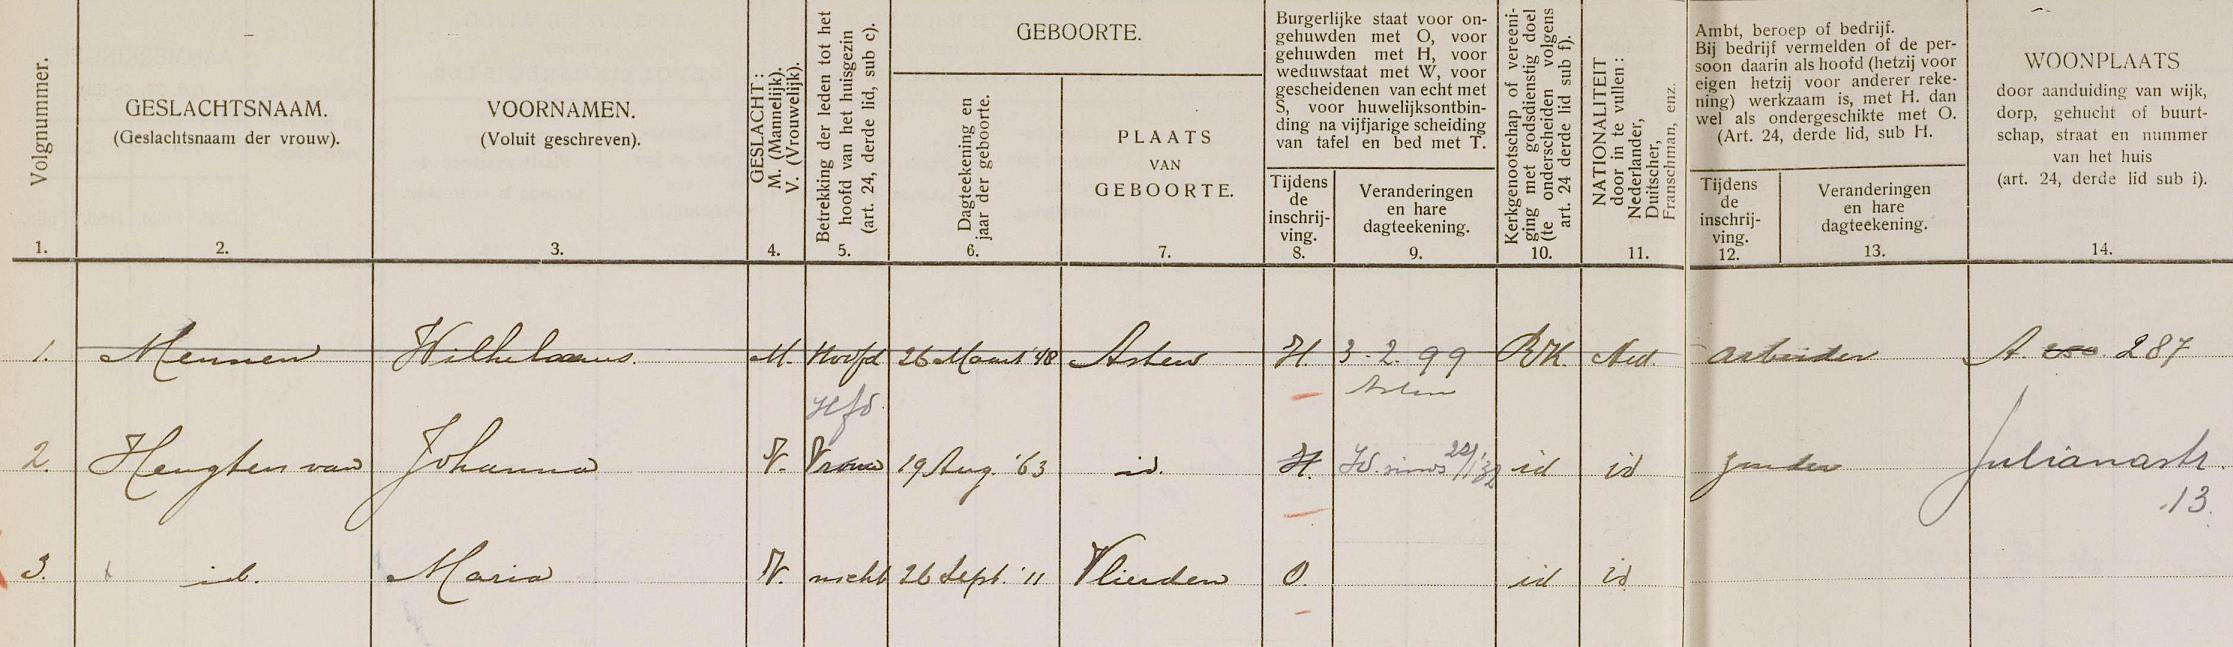 Volgnummer.
1.
GESLACHTSNAAM.
(Geslachtsnaam der vrouw).
2.
VOORNAMEN.
(Voluit geschreven).
3.
GESLACHT:
M. (Mannelijk).
V. (Vrouwelijk).
4.
Betrekking der leden tot het
hoofd van het huisgezin
(art. 24, derde lid, sub c).
5.
GEBOORTE.
Dagteekening en
jaar der geboorte.
6.
PLAATS
VAN
GEBOORTE.
7.
Burgerlijke staat voor on-
gehuwden met O, voor
gehuwden met H, voor
weduwstaat met W, voor
gescheidenen van echt met
S, voor huwelijksontbin-
ding na vijfjarige scheiding
van tafel en bed met T.
Tijdens
de
inschrij-
ving.
8.
Veranderingen
en hare
dagteekening.
9.
Kerkgenootschap of vereeni-
ging met godsdienstig doel
(te onderscheiden volgens
art. 24 derde lid sub f).
10.
NATIONALITEIT
door in te vullen:
Nederlander,
Duitscher,
Franschman, enz.
11.
Ambt, beroep of bedrijf.
Bij bedrijf vermelden of de per-
soon daarin als hoofd (hetzij voor
eigen hetzij voor anderer reke-
ning) werkzaam is, met H. dan
wel als ondergeschikte met O.
(Art. 24, derde lid, sub H.
Tijdens
de
inschrij-
ving.
12.
Veranderingen
en hare
dagteekening.
13.
WOONPLAATS
door aanduiding van wijk,
dorp, gehucht of buurt-
schap, straat en nummer
van het huis
(art. 24, derde lid sub i).
14.
1. Mennen Wilhelmus. M. Hoofd 26 Maart '48 Asten H. 3-2-99 R.K. Ned. arbeider A. 287
Hfd. Asten
2. Heugten van Johanna V. Vrouw 19 Aug. '63 id. H. Wd. sinds 22/1 '32 id id zonder Julianastr.
13.
3. id. Maria V. nicht 26 Sept. '11 Vlierden O. id id